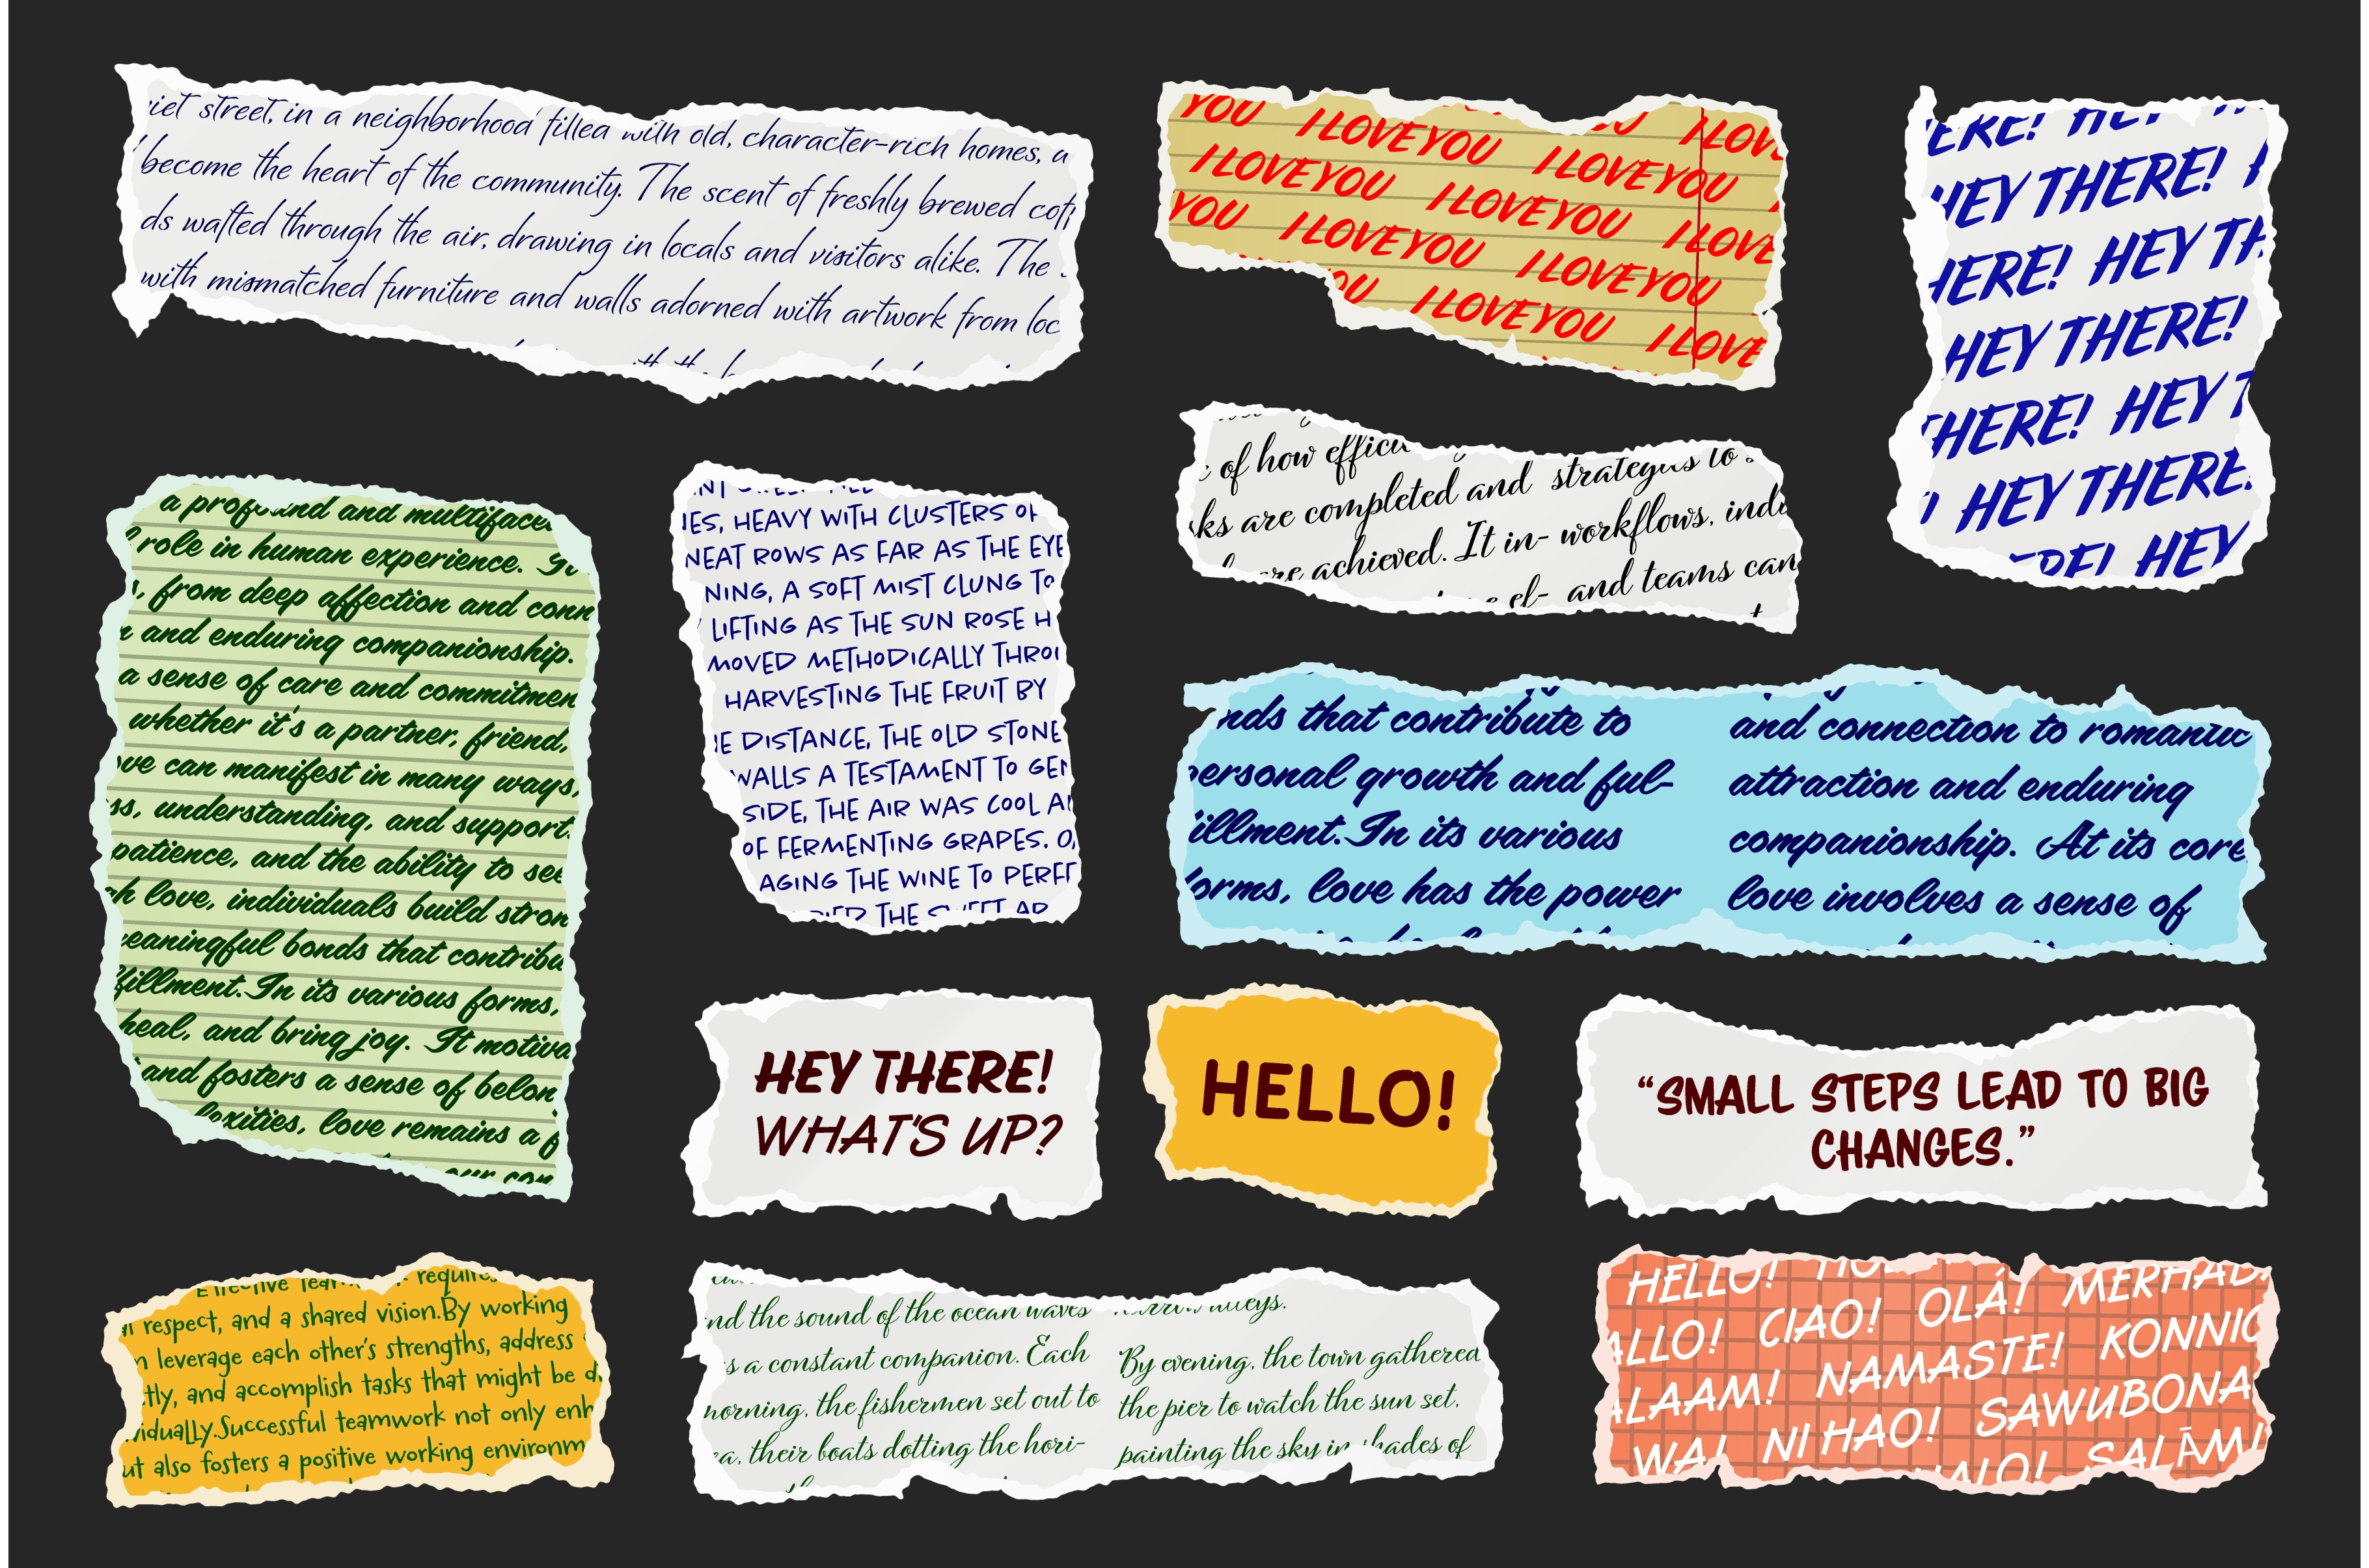 street, in a neighborhood filled with old, character-rich homes, a
become the heart of the community. The scent of freshly brewed
ds wafted through the air, drawing in locals and visitors alike. The
with mismatched furniture and walls adorned with artwork from loc
YOU I LOVE YOU I LOV
I LOVE YOU I LOVE YOU
I LOVE YOU I LOVE YOU I LOVE
YOU I LOVE YOU I LOVE YOU
OU I LOVE YOU I LOVE
ERE! HEY
HEY THERE!
HERE! HEY TH
HEY THERE!
THERE! HEY T
HEY THERE!
HEY
of how
ks are completed and strategies to
are achieved. It in- workflows, indi
el- and teams can
a profound and multiface
role in human experience.
from deep affection and conn
and enduring companionship.
a sense of care and commitmen
whether it's a partner, friend,
ove can manifest in many ways,
ss, understanding, and support.
patience, and the ability to see
gh love, individuals build stron
meaningful bonds that contribu
fillment. In its various forms,
heal, and bring joy. It motiva
and fosters a sense of belon
lexities, love remains a
our con
IES, HEAVY WITH CLUSTERS OF
NEAT ROWS AS FAR AS THE EYE
NING, A SOFT MIST CLUNG TO
LIFTING AS THE SUN ROSE H
MOVED METHODICALLY THROU
HARVESTING THE FRUIT BY
E DISTANCE, THE OLD STONE
WALLS A TESTAMENT TO GEN
SIDE, THE AIR WAS COOL A
OF FERMENTING GRAPES. O
AGING THE WINE TO PERF
THE SWEET AR
nds that contribute to
personal growth and ful-
fillment. In its various
forms, love has the power
and connection to romantic
attraction and enduring
companionship. At its core
love involves a sense of
HEY THERE!
WHAT'S UP?
HELLO!
“SMALL STEPS LEAD TO BIG
CHANGES.”
Effective requires
respect, and a shared vision.By working
n leverage each other's strengths, address
tly, and accomplish tasks that might be d
vidually.Successful teamwork not only enh
ut also fosters a positive working environm
nd the sound of the ocean waves
s a constant companion. Each
morning, the fishermen set out to
ea, their boats dotting the hori-
narrow alleys.
By evening, the town gathered
the pier to watch the sun set,
painting the sky in shades of
HELLO! MERHABA
ALLO! CIAO! OLÁ! KONNIC
ALAAM! NAMASTE! SAWUBONA
WA! NI HAO! SALĀM!